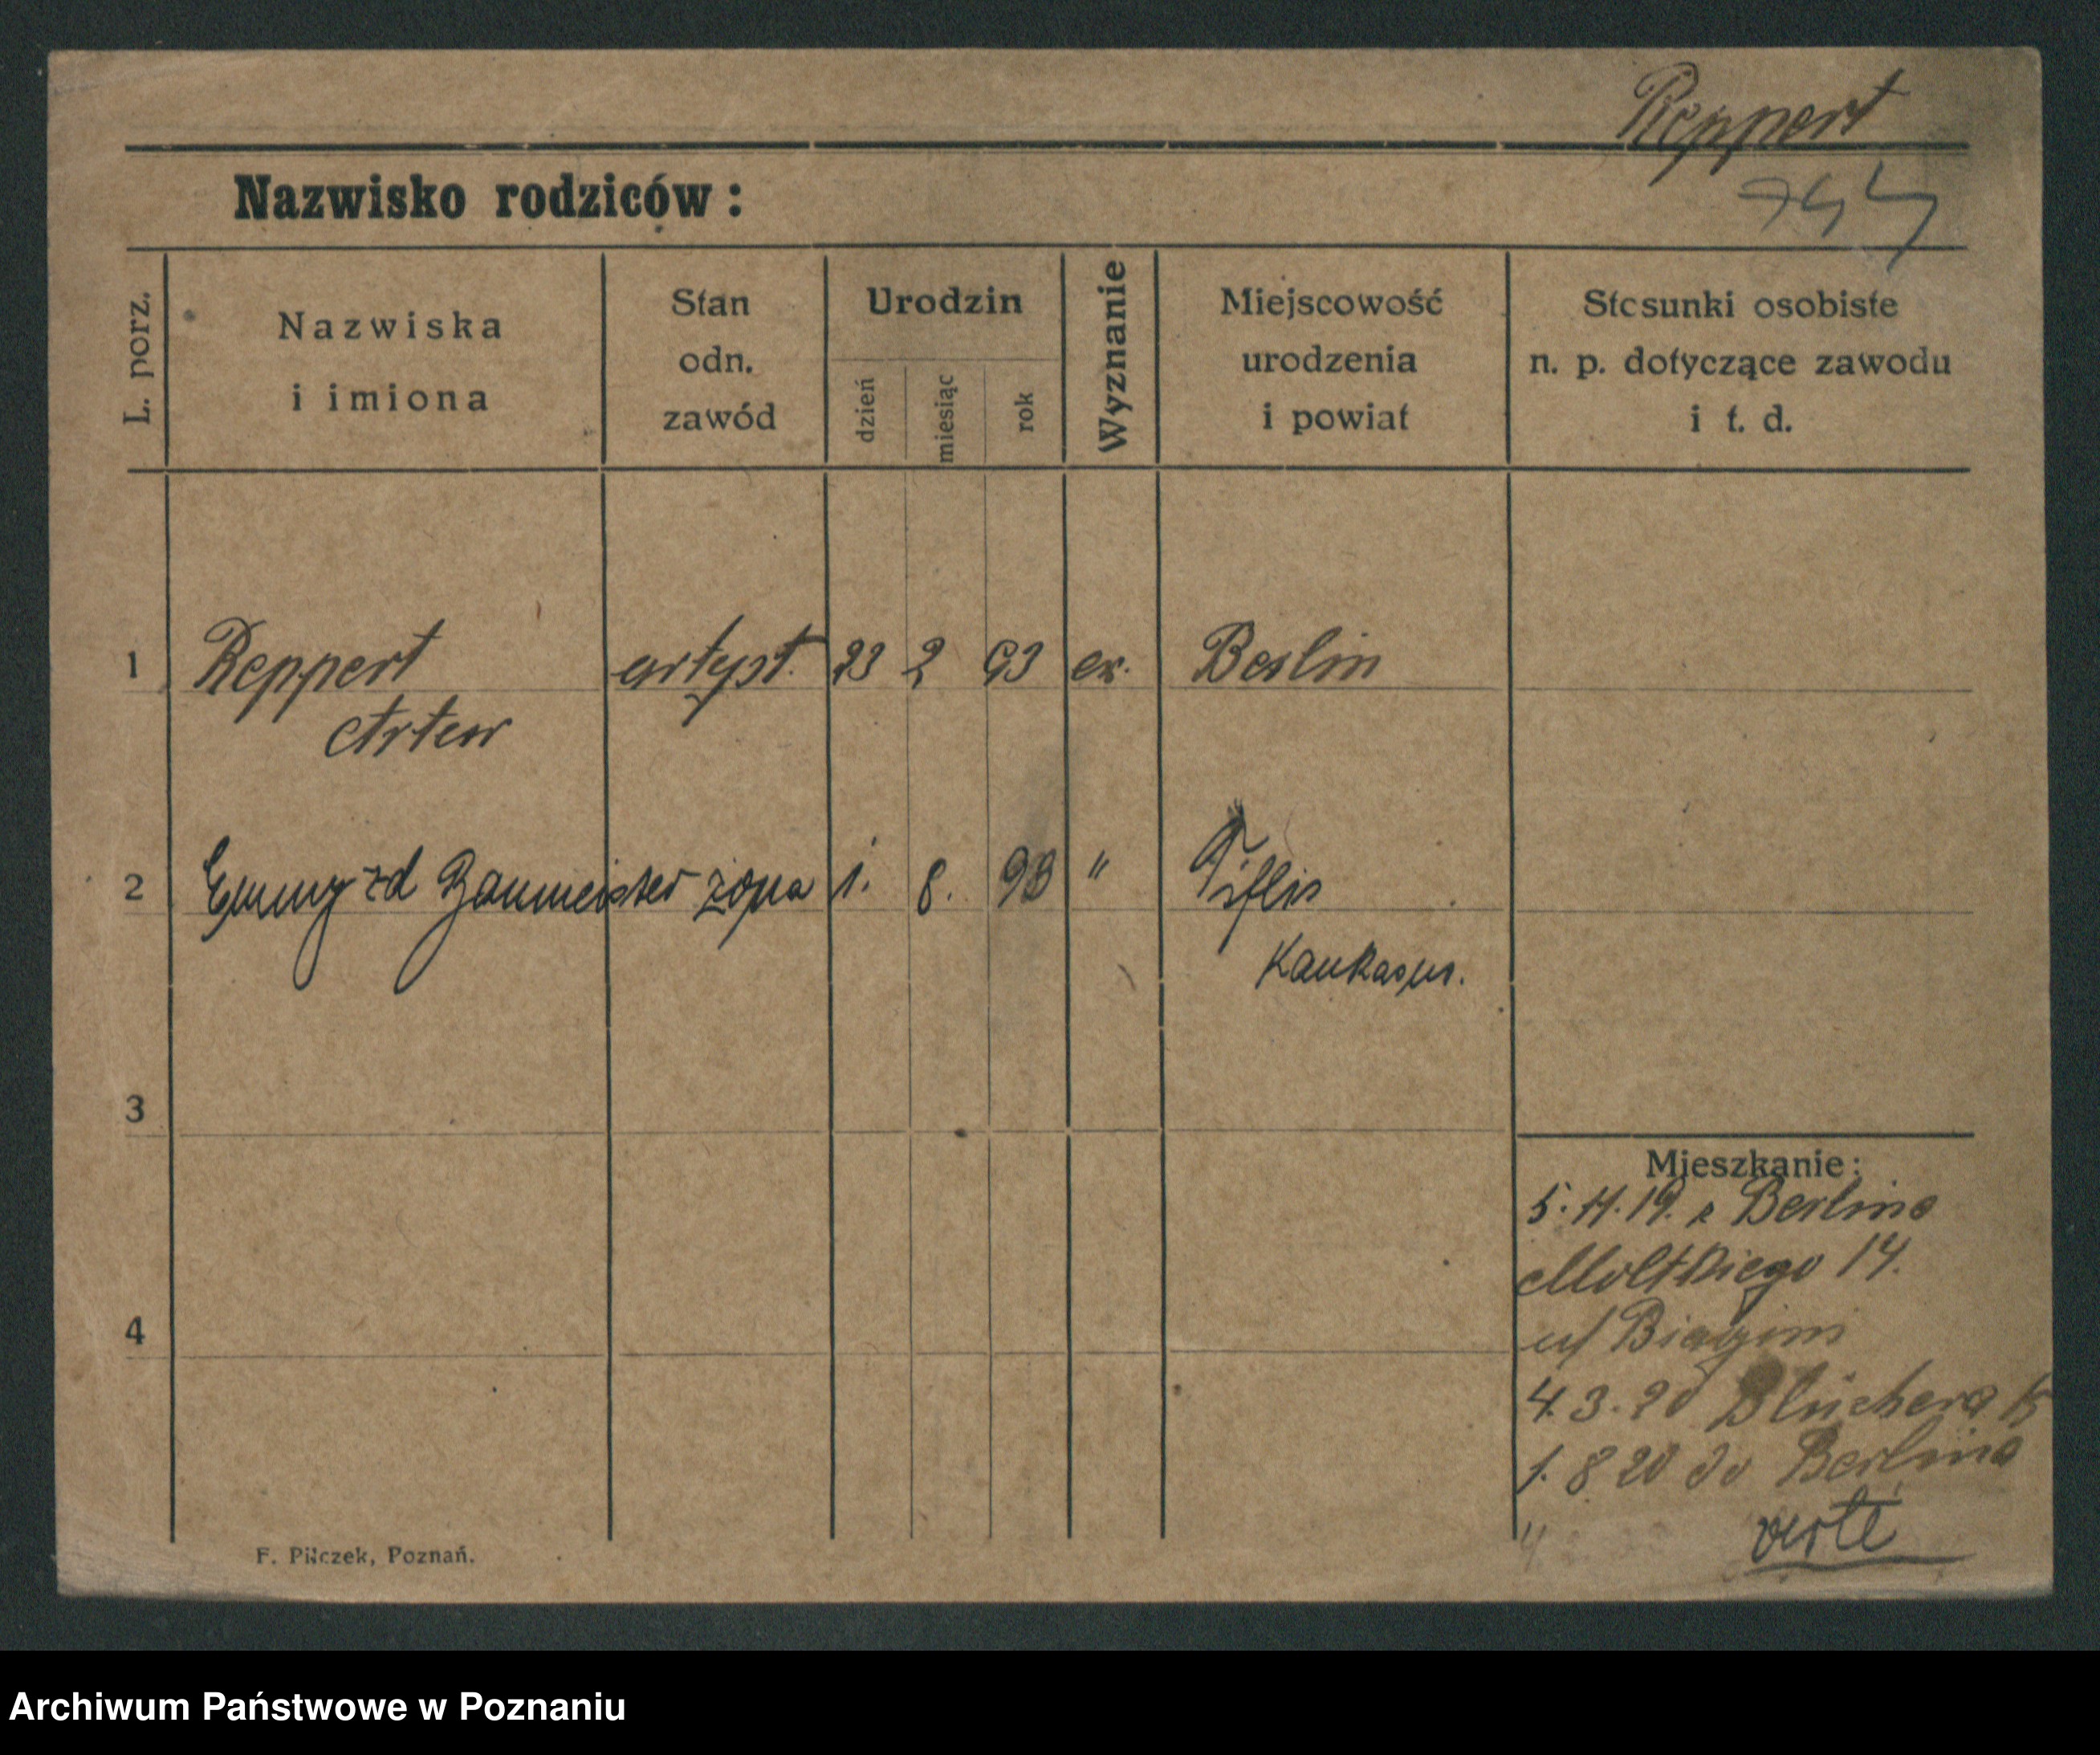 Reppert
744
Nazwisko rodziców:
L. porz.
Nazwiska
i imiona
Stan
odn.
zawód
Urodzin
dzień
miesiąc
rok
Wyznanie
Miejscowość
urodzenia
i powiat
Stosunki osobiste
n. p. dotyczące zawodu
i t. d.
1 Reppert artyst. 23 2 93 ew. Berlin
Artur
2 Emmy zd Baumeister żona 1. 8. 98 " Tiflis
Kaukasus.
3
4
Mieszkanie:
5.11.19. z Berlina
Moltkiego 14.
u/ Biagini
4.3.20 Blüchera 15
1.8 20 do Berlina
verte
F. Pilczek, Poznań.
Archiwum Państwowe w Poznaniu